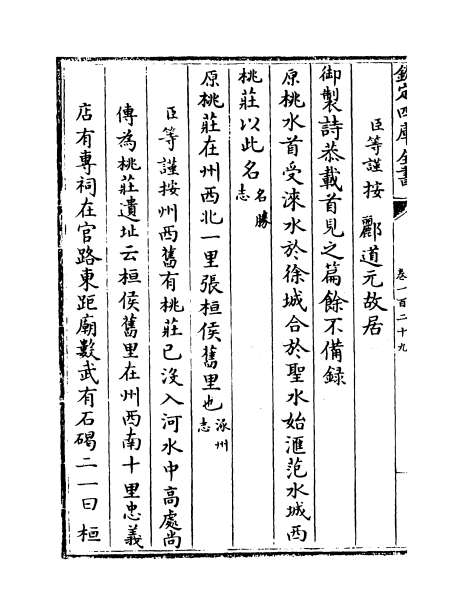 欽定四庫全書
卷一百二十九
臣等謹按 酈道元故居
御製詩恭載首見之篇餘不備録
原桃水首受淶水於徐城合於聖水始滙范水城西
桃莊以此名名勝志
原桃莊在州西北一里張桓侯舊里也涿州志
臣等謹按州西舊有桃莊已沒入河水中高處尚
傳為桃莊遺址云桓侯舊里在州西南十里忠義
店有專祠在官路東距廟數武有石碣二一曰桓